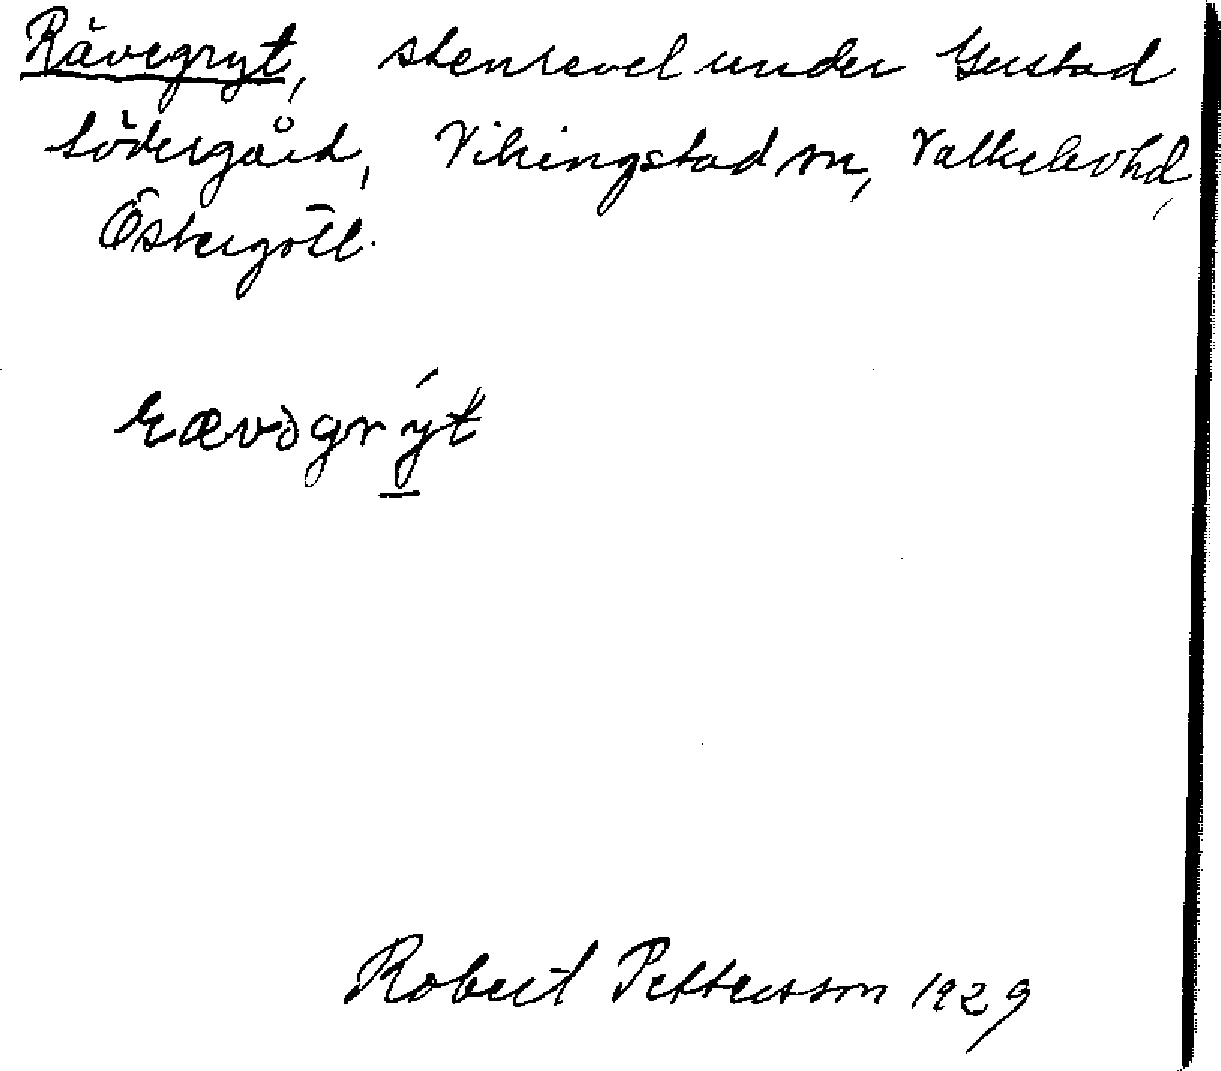 Rävegryt, stenrevel under Gustad
Södergård, Vikingstad sn, Valkebo hd,
Östergötl.
rævəgrýt
Robert Pettersson 1929